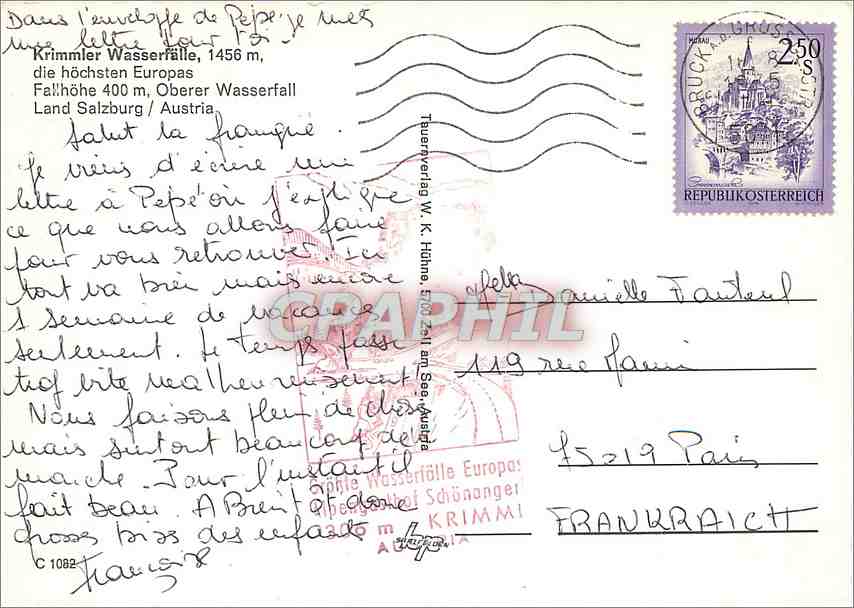 Dans l'enveloppe de Pepé je mets
une lettre pour toi.
Krimmler Wasserfälle, 1456 m,
die höchsten Europas
Fallhöhe 400 m, Oberer Wasserfall
Land Salzburg / Austria
Salut la
Je viens d'écrire une
lettre à Pepé où j'explique
ce que nous allons faire
pour vous retrouver. Ici
tout va bien mais encore
1 semaine de vacances
seulement. Le temps passe
trop vite malheureusement!
Nous faisons plein de choses
mais surtout beaucoup de
marche. Pour l'instant il
fait beau. A Bientôt donc
grosses bises des enfants
Françoise
C 1082
Tauernverlag W. K. Hühne, 5700 Zell am See, Austria
CPAPHIL
Größte Wasserfälle Europas
Alpengasthof Schönangerl
1306 m KRIMML
AUSTRIA
SAALFELDEN
BRUCK A.D. GROSSGL.STR.
MURAU
2.50
S
REPUBLIK ÖSTERREICH
Danielle Fauteul
119 rue
75019 Paris
FRANKRAICH